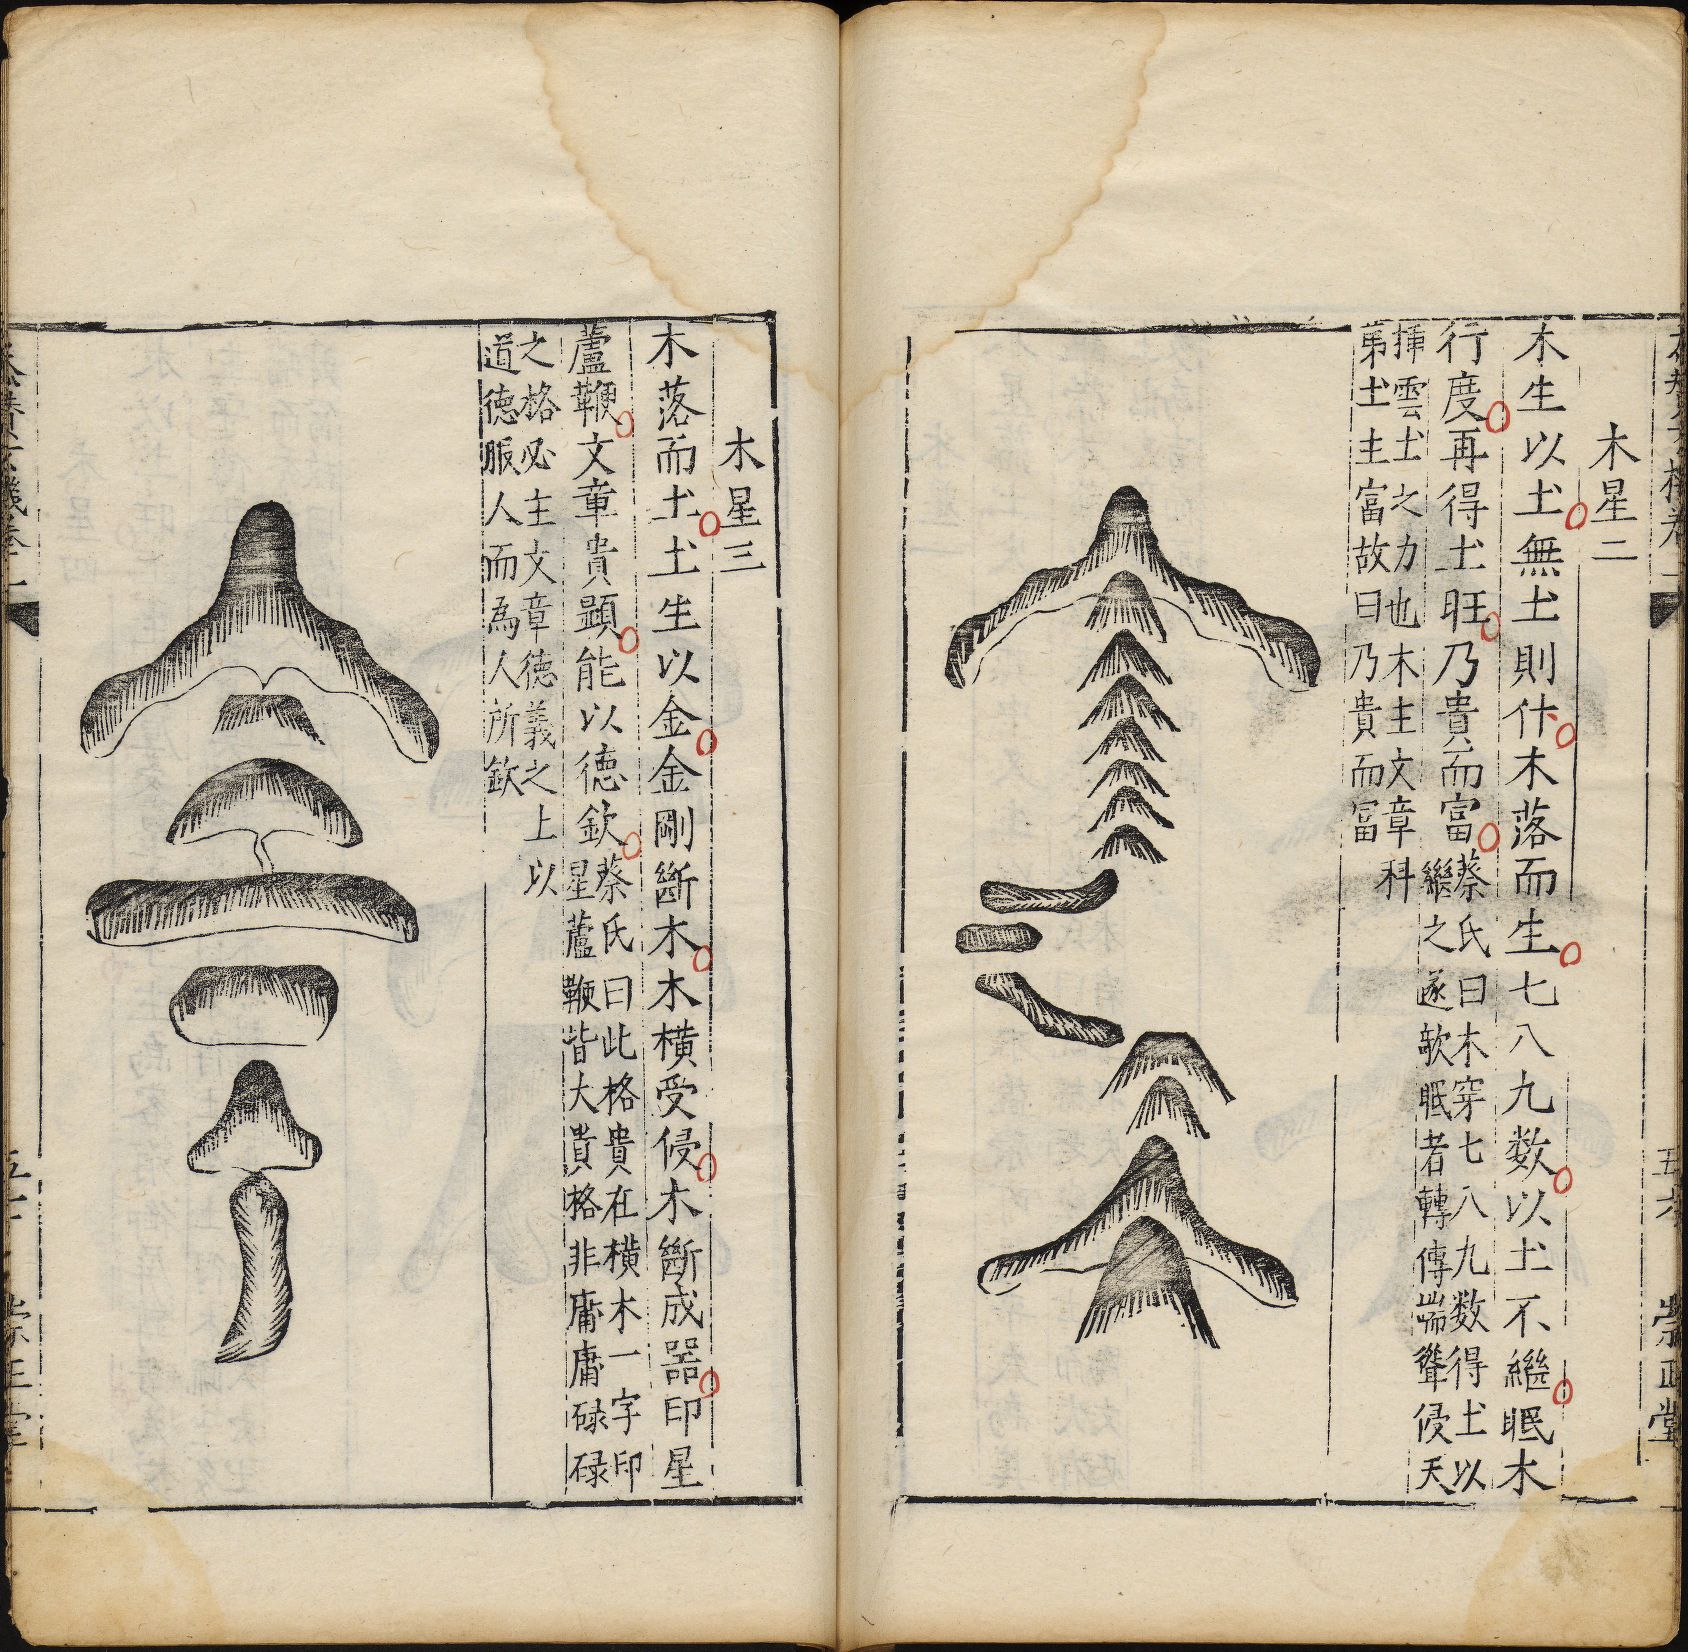 木星二
木生以土無土則仆木落而生七八九数以土不繼眠木
行度再得土旺乃貴而富蔡氏曰木穿七八九数得土以
繼之遂欹眠者轉傳耑聳侵天
挿雲土之力也木主文章科
第土主富故曰乃貴而富
崇正堂
木星三
木落而土土生以金金剛斷木木橫受侵木斷成器印星
蘆鞭文章貴顕能以德欽蔡氏曰此格貴在橫木一字印
星蘆鞭皆大貴格非庸庸碌碌
之格必主文章徳義之上以
道徳服人而為人所欽